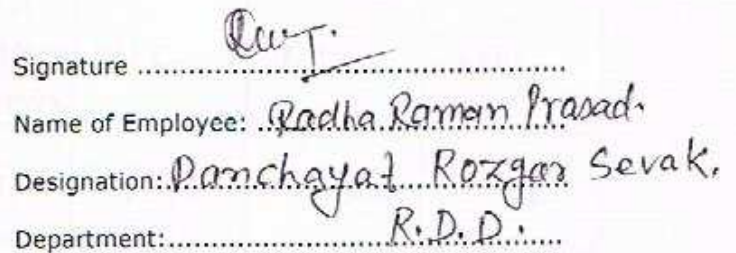 Signature ..........
Name of Employee: Radha Raman Prasad.
Designation: Panchayat Rozgar Sevak.
Department: R.D.D.